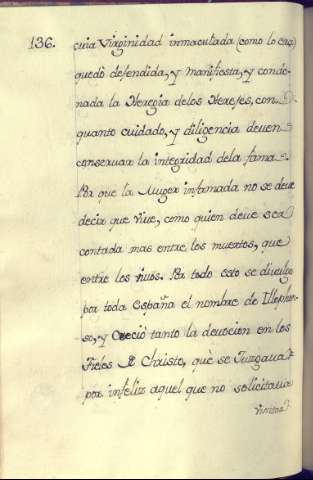 136.
cuia Virginidad inmaculada (como lo car)
quedò defendida, y manifiesta, y conde-
nada la Heregia delos Hereges, con
quanto cuidado, y diligencia deuen
conseruar la integridad dela fama.
Por que la Muger infamada no se deue
decir que viue, como quien deue ser
contada mas entre los muertos, que
entre los viuos. Por todo esto se diuulgo
por toda España el nombre de Illephon-
so, y creciò tanto la deuocion en los
Fieles de Christo, que se Juzgaua
por infeliz aquel que no solicitaua